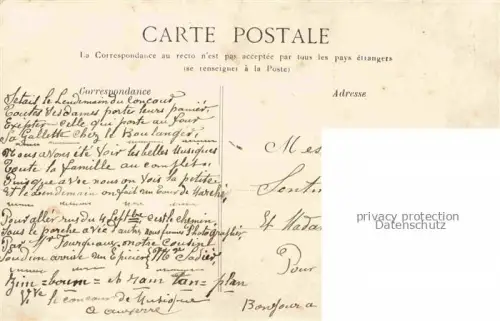 CARTE POSTALE
La Correspondance au recto n'est pas acceptée par tous les pays étrangers
(se renseigner à la Poste)
Correspondance
Adresse
C'était le Lendemain du Concour
Toutes les Dames portes leurs panier
Excepter celle qui porte au four
Sa Gallette chez le Boulanger
Nous avons été voir les belles Musiques
Toute la famille au complet
Puisque avec nous on vois la petite
Et le Lendemain on fait un tour de Marché
Pour aller rus du 4 Septbre c'est le chemin
Sous le porche avec l'autre nous fumes Photographier
Par Mr notre Cousin
Soudain arrive un Epicier Mr
Zim = boum = et ram tan = plan
Vive le concour de Musique
a auxerre!
Mes
Senti
Et Mada
Pour
Bonjour a
privacy protection
Datenschutz